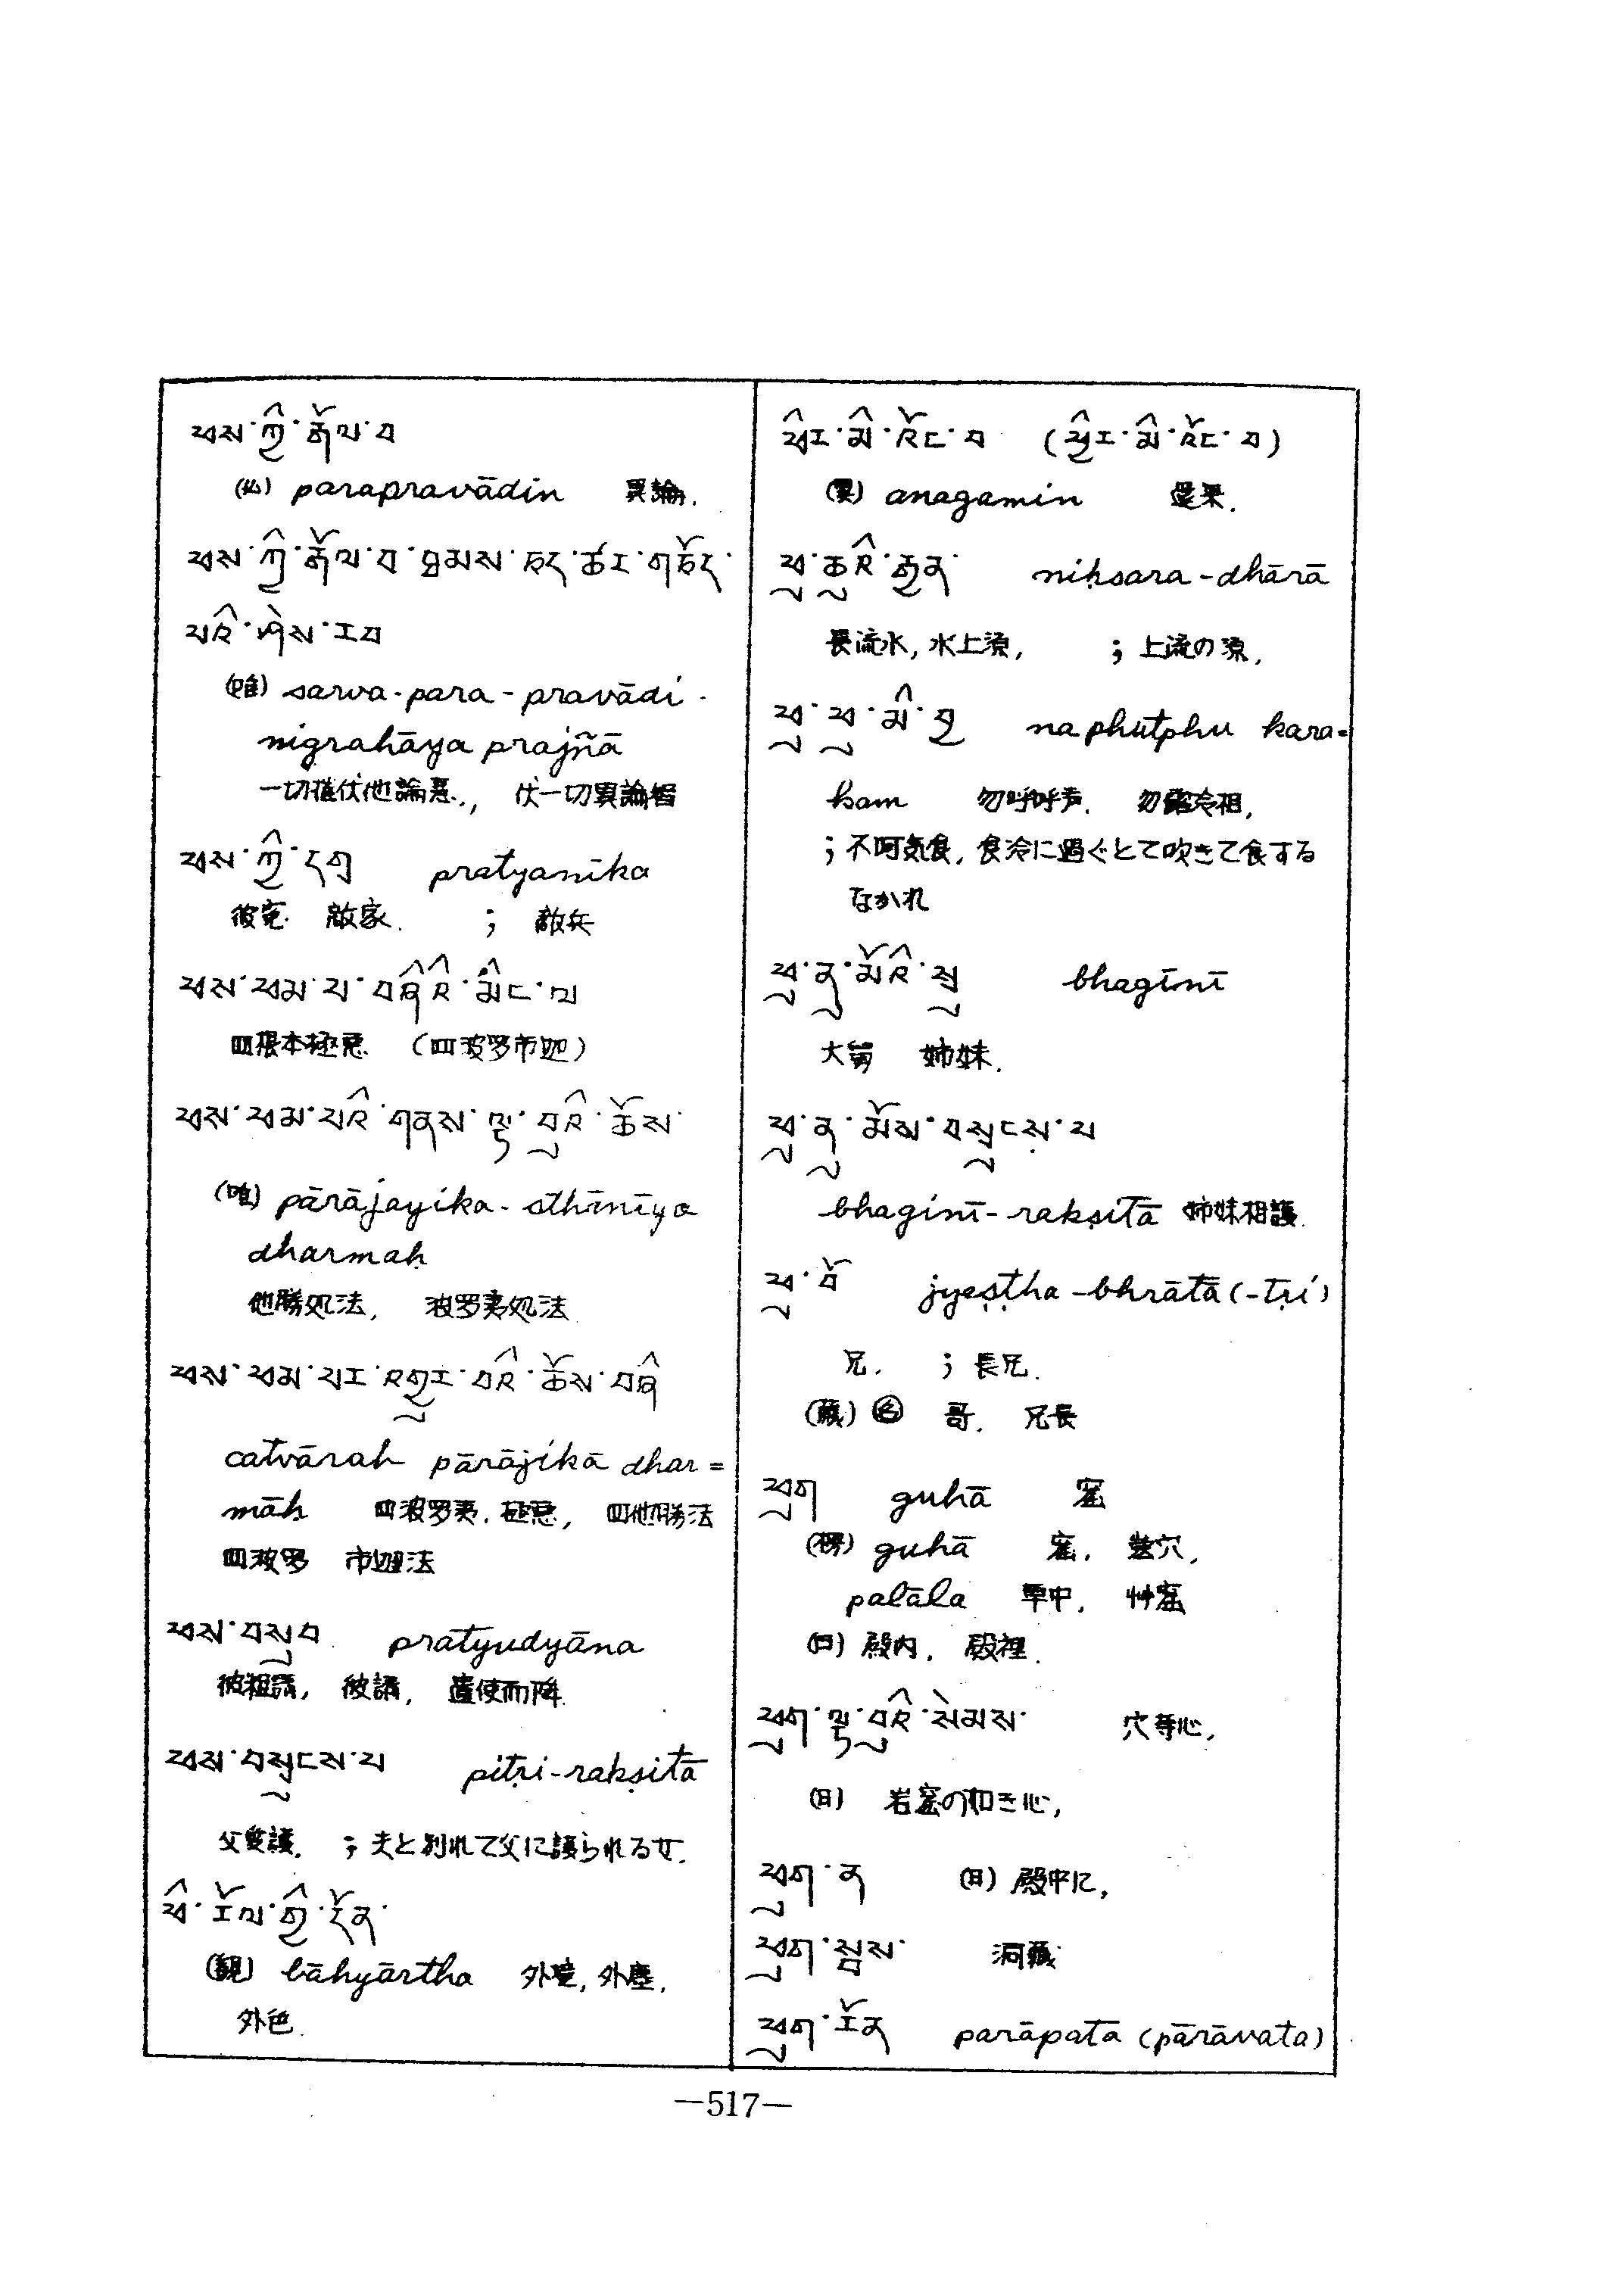 ཕས་ཀྱི་རྒོལ་བ
(仏) parapravādin 異論.
ཕས་ཀྱི་རྒོལ་བ་ཐམས་ཅད་ཚར་གཅོད་
པའི་ཤེས་རབ
(唯) sarva-para-pravādi-
nigrahāya prajñā
一切摧伏他論慧., 伏一切異論智
ཕས་ཀྱི་དགྲ pratyanīka
彼寃. 敵家. ; 敵兵
ཕས་ཕམ་པ་བཞིའི་མིང་ལ
四根本極悪 (四波罗市迦)
ཕས་ཕམ་པའི་གནས་ལྟ་བུའི་ཆོས་
(唯) pārājayika-sthānīya
dharmaḥ
他勝処法, 波罗夷処法
ཕས་ཕམ་པར་འགྱུར་བའི་ཆོས་བཞི
catvārah pārājikā dhar=
māḥ 四波罗夷. 極悪, 四他勝法
四波罗 市迦法
ཕས་བསུབ pratyudyāna
彼祖議, 彼講, 遣使而降.
ཕས་བསྲུངས་པ pitṛi-rakṣitā
父雙護. ; 夫と別れて父に護られる女.
ཕྱི་རོལ་གྱི་དོན་
(観) bāhyārtha 外境, 外塵,
外色.
ཕྱིར་མི་འོང་བ (ཕྱིར་མི་འོང་བ)
(翼) anagamin 還果.
ཕུ་ཆུའི་རྒྱུན་ niḥsara-dhārā
長流水, 水上源, ; 上流の源,
ཕུ་ཕུ་མི་བྱ na phutphu kara=
kam 勿呼呼声. 勿
; 不呵気食, 食冷に過ぐとて吹きて食する
なかれ
ཕུ་ནུ་མོའི་སྲུ bhagīnī
大舅 姉妹.
ཕུ་ནུ་མོས་བསྲུངས་པ
bhaginī-rakṣitā 姉妹相護.
ཕུ་བོ jyeṣṭha-bhrātā (-tṛi)
兄. ; 長兄.
(蔵) 名 哥. 兄長
ཕུག guhā 窟
(楞) guhā 窟, 嵓穴,
palāla 草中, 艸窟
(日) 殿内, 殿裡.
ཕུག་ལྟ་བུའི་སེམས་ 穴等心,
(日) 岩窟の如き心,
ཕུག་ན (日) 殿中に,
ཕུག་སྦས་ 洞蔵
ཕུག་རོན parāpata (pārāvata)
—517—